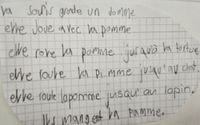 la souris garde un pomme
elle joue avec la pomme
elle rore la pomme jusqu'a la tortue
elle roule la pomme jusqu'au chat.
elle roule lapomme jusqu'au lapin.
ils mangent la pamme.